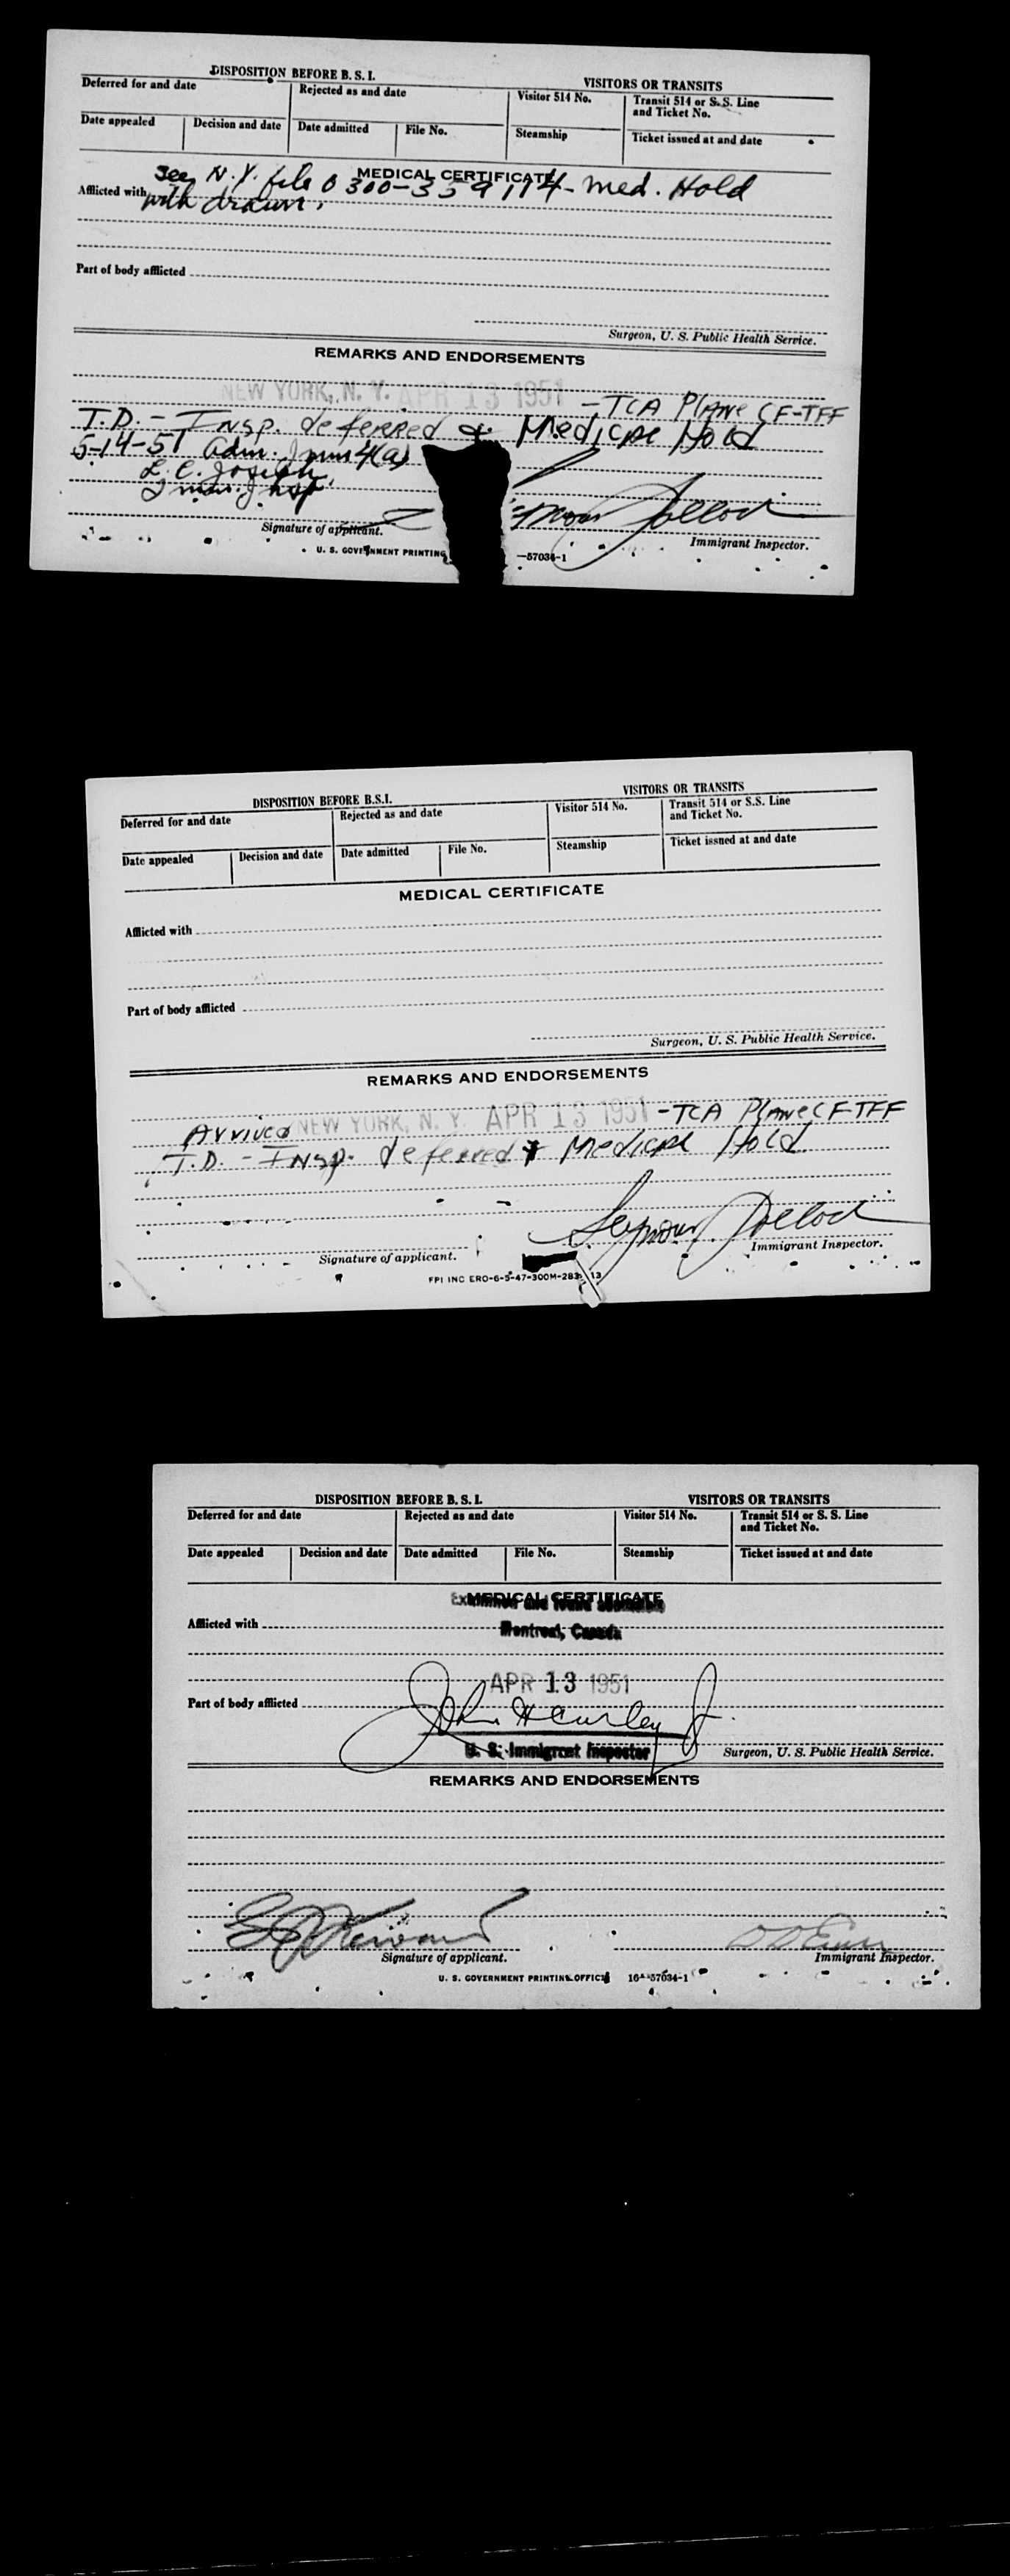 DISPOSITION BEFORE B. S. I.
VISITORS OR TRANSITS
Deferred for and date
Rejected as and date
Visitor 514 No.
Transit 514 or S. S. Line
and Ticket No.
Date appealed
Decision and date
Date admitted
File No.
Steamship
Ticket issued at and date
MEDICAL CERTIFICATE
See N.Y. file 0300-339114- Med. Hold
Afflicted with
with drawn.
Part of body afflicted
Surgeon, U. S. Public Health Service.
REMARKS AND ENDORSEMENTS
NEW YORK, N. Y. APR 13 1951 - TCA Plane CF-TFF
T.D. - Insp. deferred & Medical Hold
5-14-51 adm. Imm 4(a)
L. C. Joseph
Imm. Insp.
Signature of applicant.
Immigrant Inspector.
U. S. GOVERNMENT PRINTING
—57034-1
DISPOSITION BEFORE B.S.I.
VISITORS OR TRANSITS
Deferred for and date
Rejected as and date
Visitor 514 No.
Transit 514 or S.S. Line
and Ticket No.
Date appealed
Decision and date
Date admitted
File No.
Steamship
Ticket issued at and date
MEDICAL CERTIFICATE
Afflicted with
Part of body afflicted
Surgeon, U. S. Public Health Service.
REMARKS AND ENDORSEMENTS
Arrived NEW YORK, N. Y. APR 13 1951 - TCA Plane CF-TFF
T.D. - Insp. deferred & Medical Hold
Seymour Pollock
Signature of applicant.
Immigrant Inspector.
FPI INC ERO-6-5-47-300M-283 13
DISPOSITION BEFORE B. S. I.
VISITORS OR TRANSITS
Deferred for and date
Rejected as and date
Visitor 514 No.
Transit 514 or S. S. Line
and Ticket No.
Date appealed
Decision and date
Date admitted
File No.
Steamship
Ticket issued at and date
MEDICAL CERTIFICATE
Examined and found admissible
Afflicted with
Montreal, Canada
APR 13 1951
Part of body afflicted
John Hawley Jr.
U. S. Immigrant Inspector
Surgeon, U. S. Public Health Service.
REMARKS AND ENDORSEMENTS
Signature of applicant.
Immigrant Inspector.
U. S. GOVERNMENT PRINTING OFFICE 16—57034-1